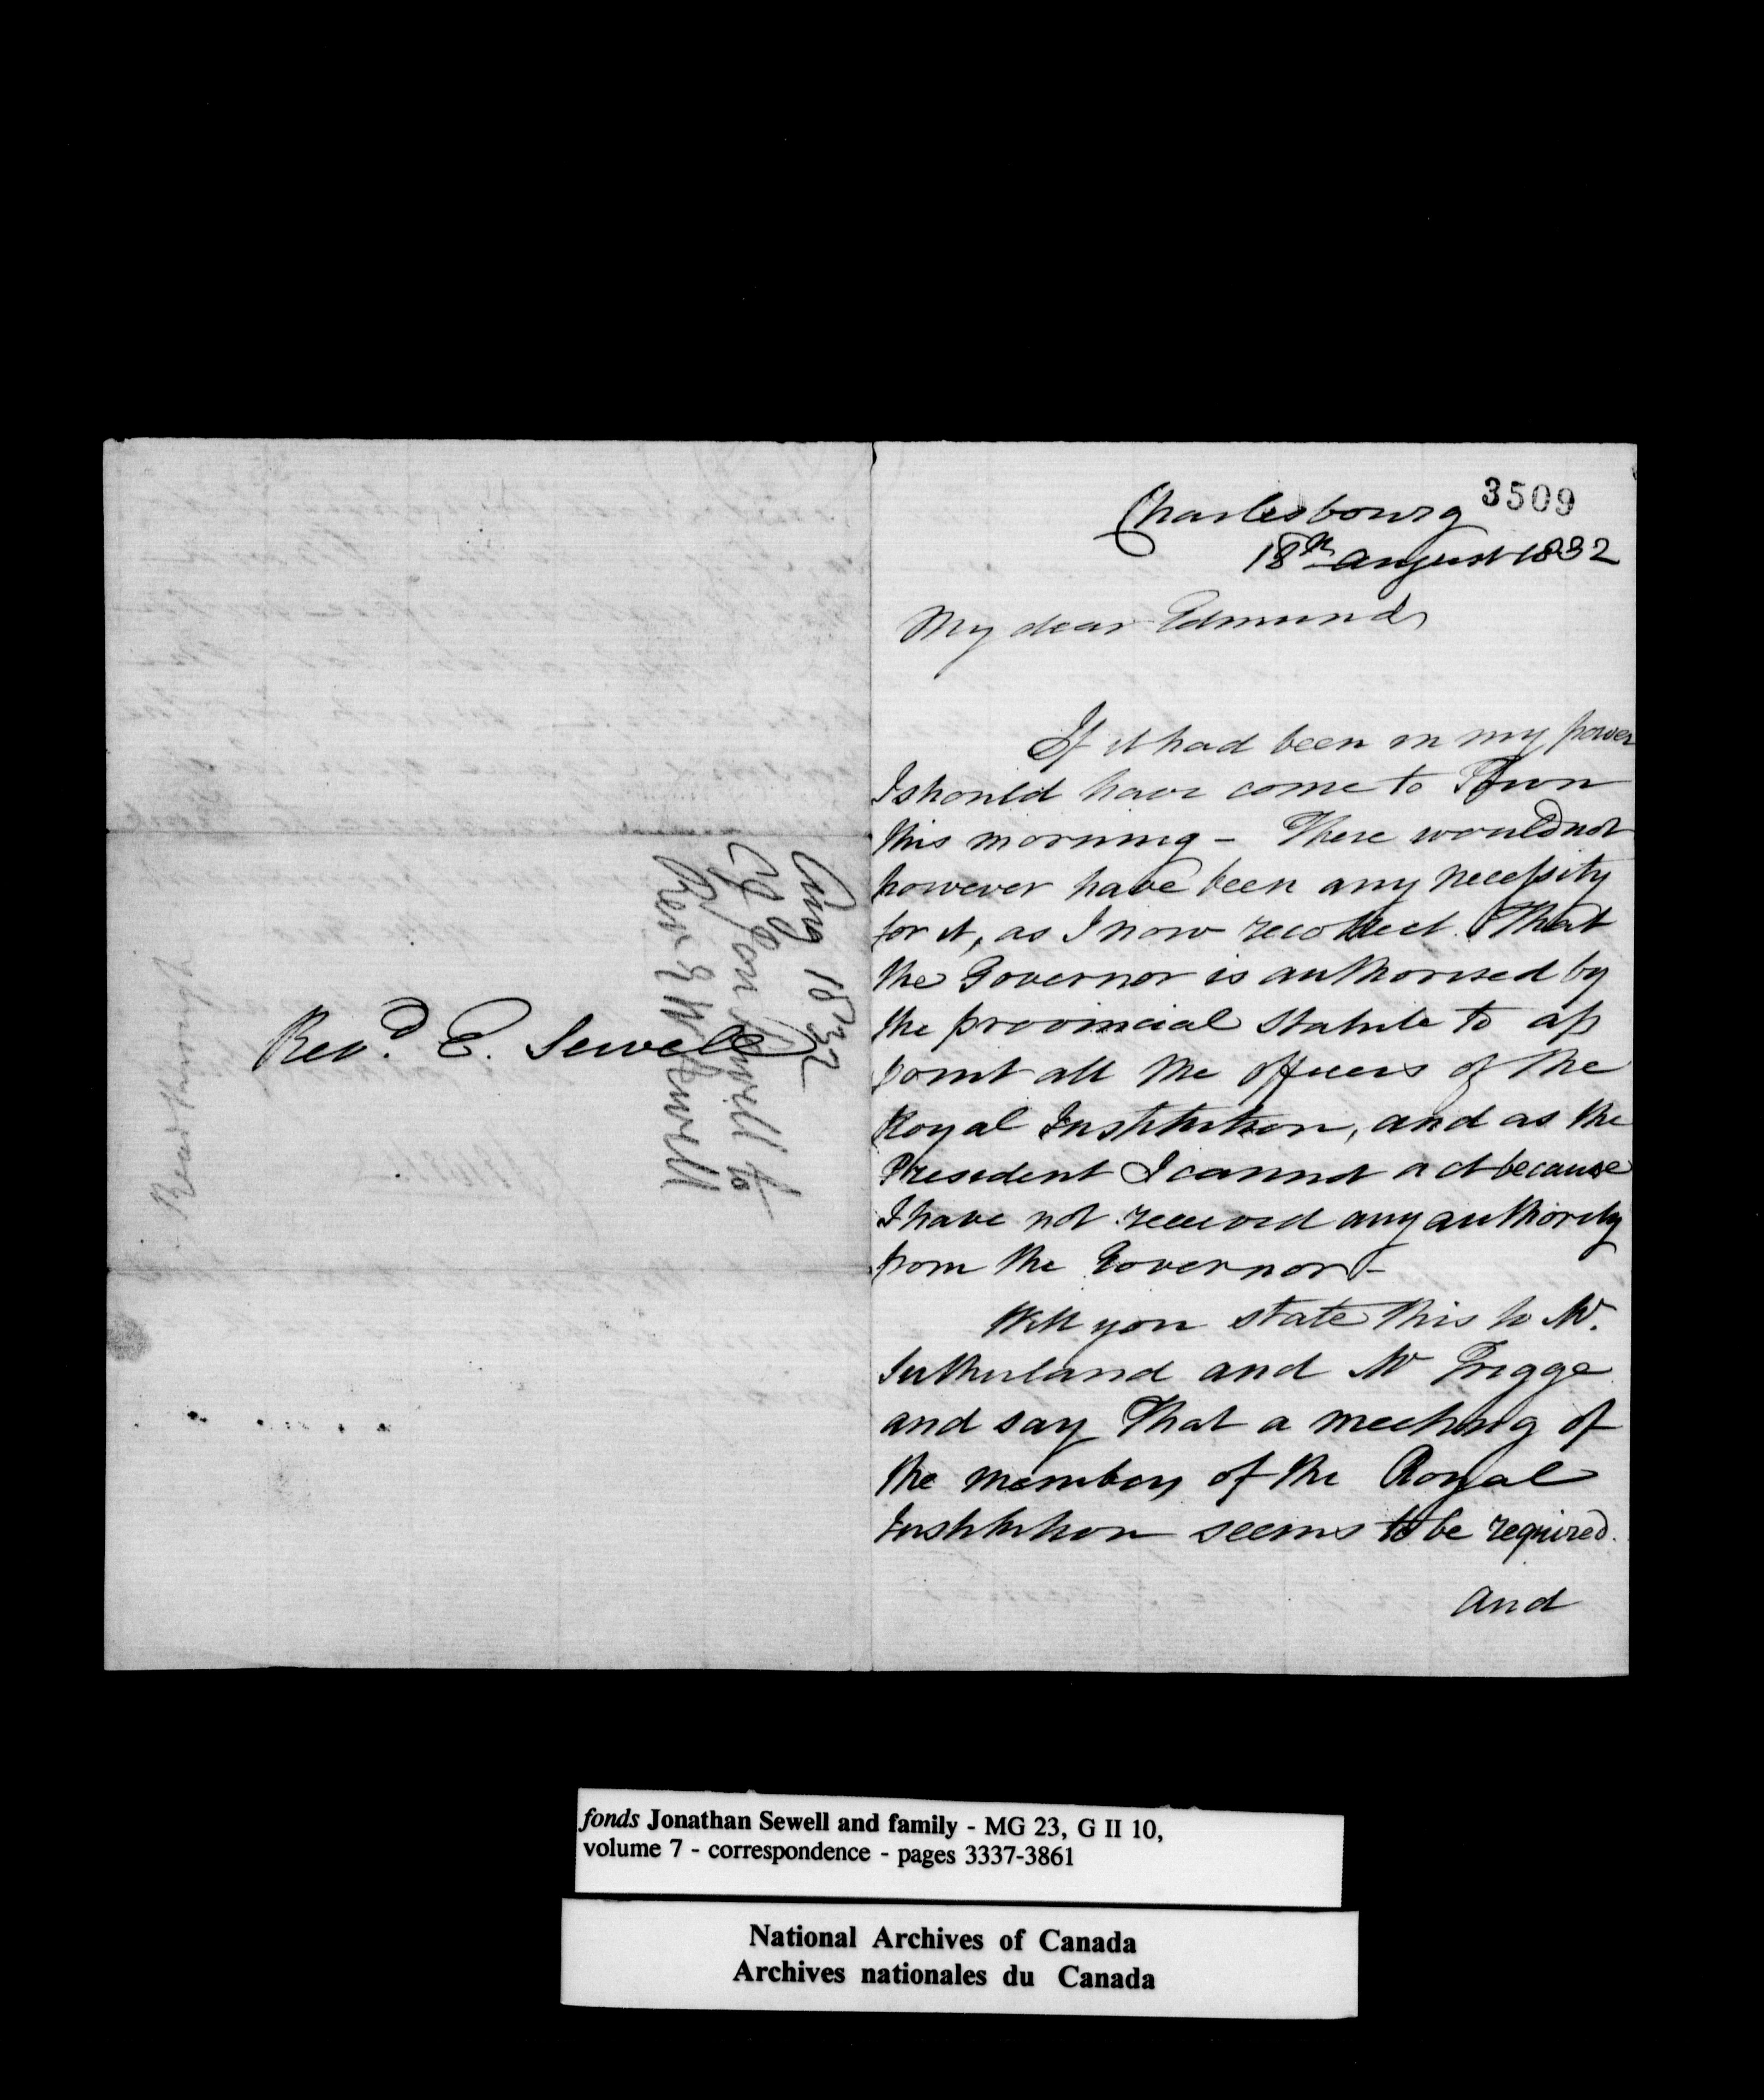 Rev.d E. Sewell
Aug 1832
C J Jon Sewell to
Rev E W Sewell
Read through
3509
Charlesbourg
18th August 1832
My dear Edmund
If it had been in my power
I should have come to Town
this morning - There would not
however have been any necessity
for it, as I now recollect that
the Governor is authorised by
the provincial Statute to ap
point all the officers of the
Royal Institution, and as the
President I cannot act because
I have not received any authority
from the Governor -
Will you state this to Mr.
Sutherland and Mr Trigge
and say that a meeting of
the members of the Royal
Institution seems to be required.
and
fonds Jonathan Sewell and family - MG 23, G II 10,
volume 7 - correspondence - pages 3337-3861
National Archives of Canada
Archives nationales du Canada